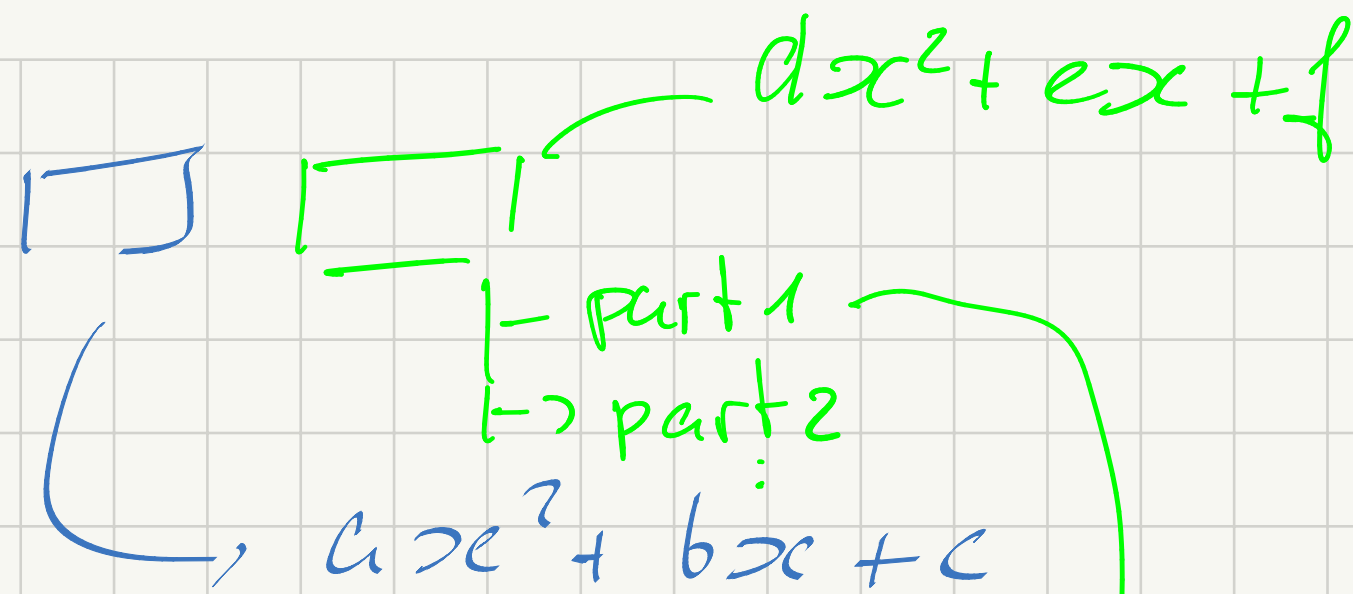 dx²+ ex + f
part 1
part 2
ax² + bx + c